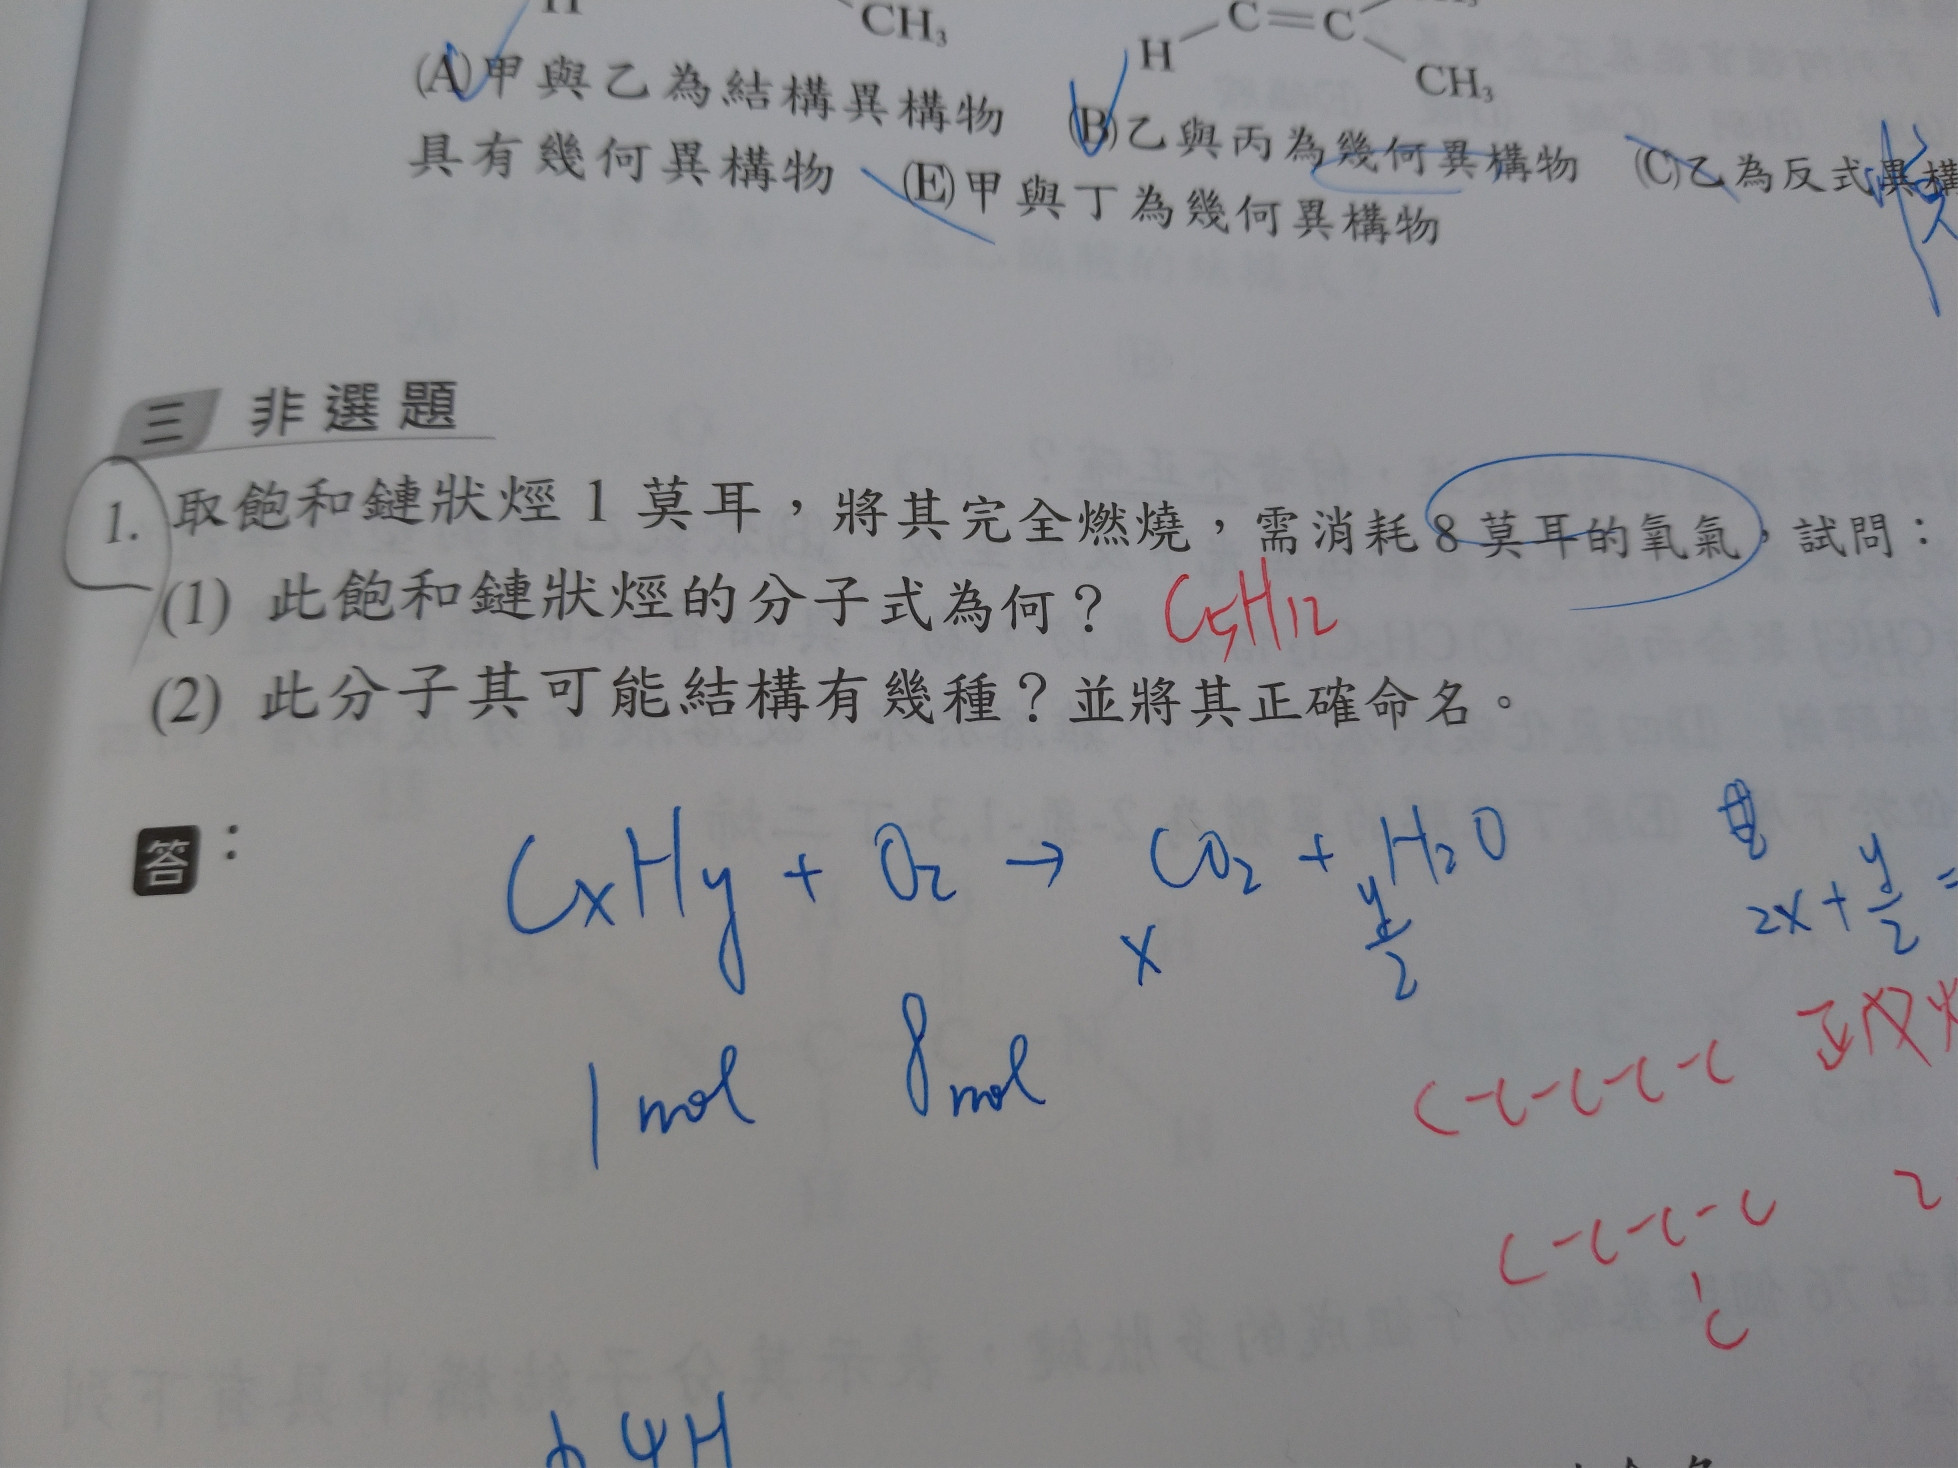 H
CH₃
H C=C
CH₃
(A)甲與乙為結構異構物 (B)乙與丙為幾何異構物 (C)乙為反式異構
具有幾何異構物 (E)甲與丁為幾何異構物
三 非選題
1. 取飽和鏈狀烴 1 莫耳，將其完全燃燒，需消耗 8 莫耳的氧氣，試問：
(1) 此飽和鏈狀烴的分子式為何？ C₅H₁₂
(2) 此分子其可能結構有幾種？並將其正確命名。
答：
CxHy + O₂ → CO₂ + H₂O
x y/2 2x + y/2 =
1 mol 8 mol
C-C-C-C-C 正戊烷
C-C-C-C 2
C
4H